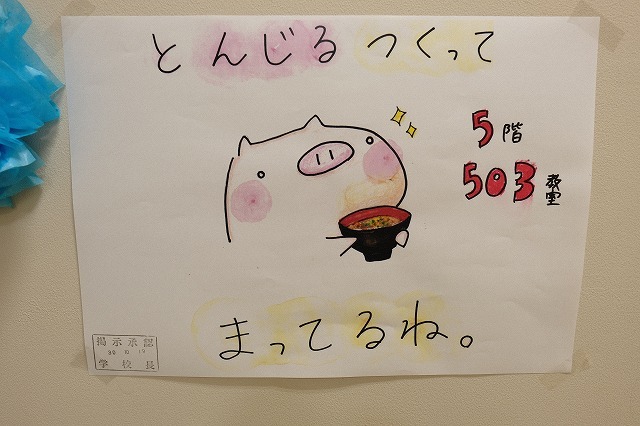 とんじるつくって
5階
503教室
まってるね。
掲示承認
30 10 19
学校長